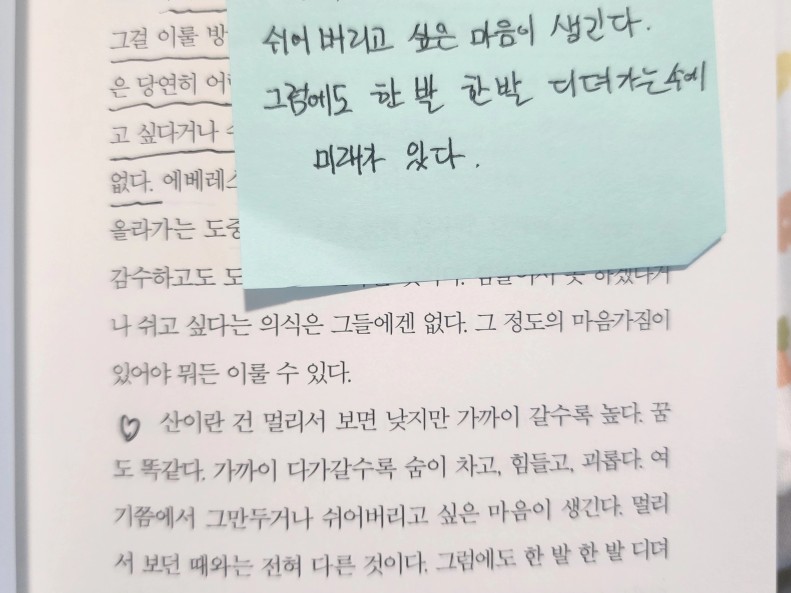 쉬어버리고 싶은 마음이 생긴다.
그럼에도 한 발 한 발 디뎌가는 속에
미래가 있다.
그걸 이룰
은 당연히
고 싶다거나
없다. 에베레스
올라가는 도중
감수하고도
나 쉬고 싶다는 의식은 그들에겐 없다. 그 정도의 마음가짐이
있어야 뭐든 이룰 수 있다.
산이란 건 멀리서 보면 낮지만 가까이 갈수록 높다. 꿈
도 똑같다. 가까이 다가갈수록 숨이 차고, 힘들고, 괴롭다. 여
기쯤에서 그만두거나 쉬어버리고 싶은 마음이 생긴다. 멀리
서 보던 때와는 전혀 다른 것이다. 그럼에도 한 발 한 발 디뎌